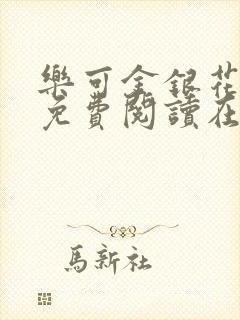 樂可金銀花
免費閱讀在
馬新社